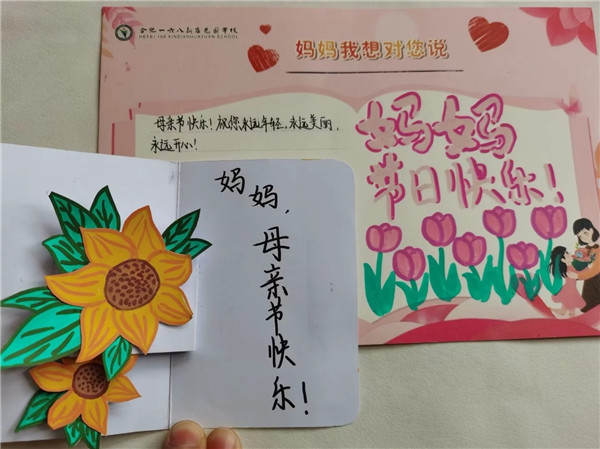 合肥一六八新店花园学校
HEFEI 168 XINDIANHUAYUAN SCHOOL
妈妈我想对您说
母亲节快乐！祝您永远年轻，永远美丽，
永远开心！
妈妈
节日快乐！
妈妈，
母亲节快乐！